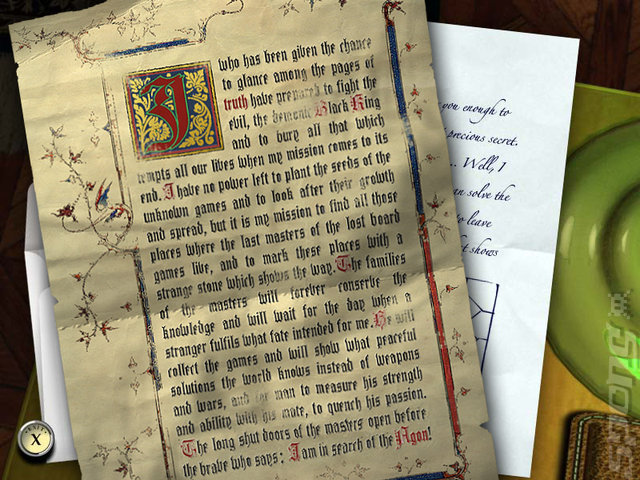 I who has been given the chance
to glance among the pages of
truth have prepared to fight the
evil, the demonic Black King
and to bury all that which
tempts all our lives when my mission comes to its
end. I have no power left to plant the seeds of the
unknown games and to look after their growth
and spread, but it is my mission to find all those
places where the last masters of the lost board
games live, and to mark these places with a
strange stone which shows the way. The families
of the masters will forever conserve the
knowledge and will wait for the day when a
stranger fulfils what fate intended for me. He will
collect the games and will show what peaceful
solutions the world knows instead of weapons
and wars, and the man to measure his strength
and ability with his mate, to quench his passion.
The long shut doors of the masters open before
the brave who says: I am in search of the Agon!
you enough to
precious secret.
... Well, I
can solve the
to leave
shows
X
spons